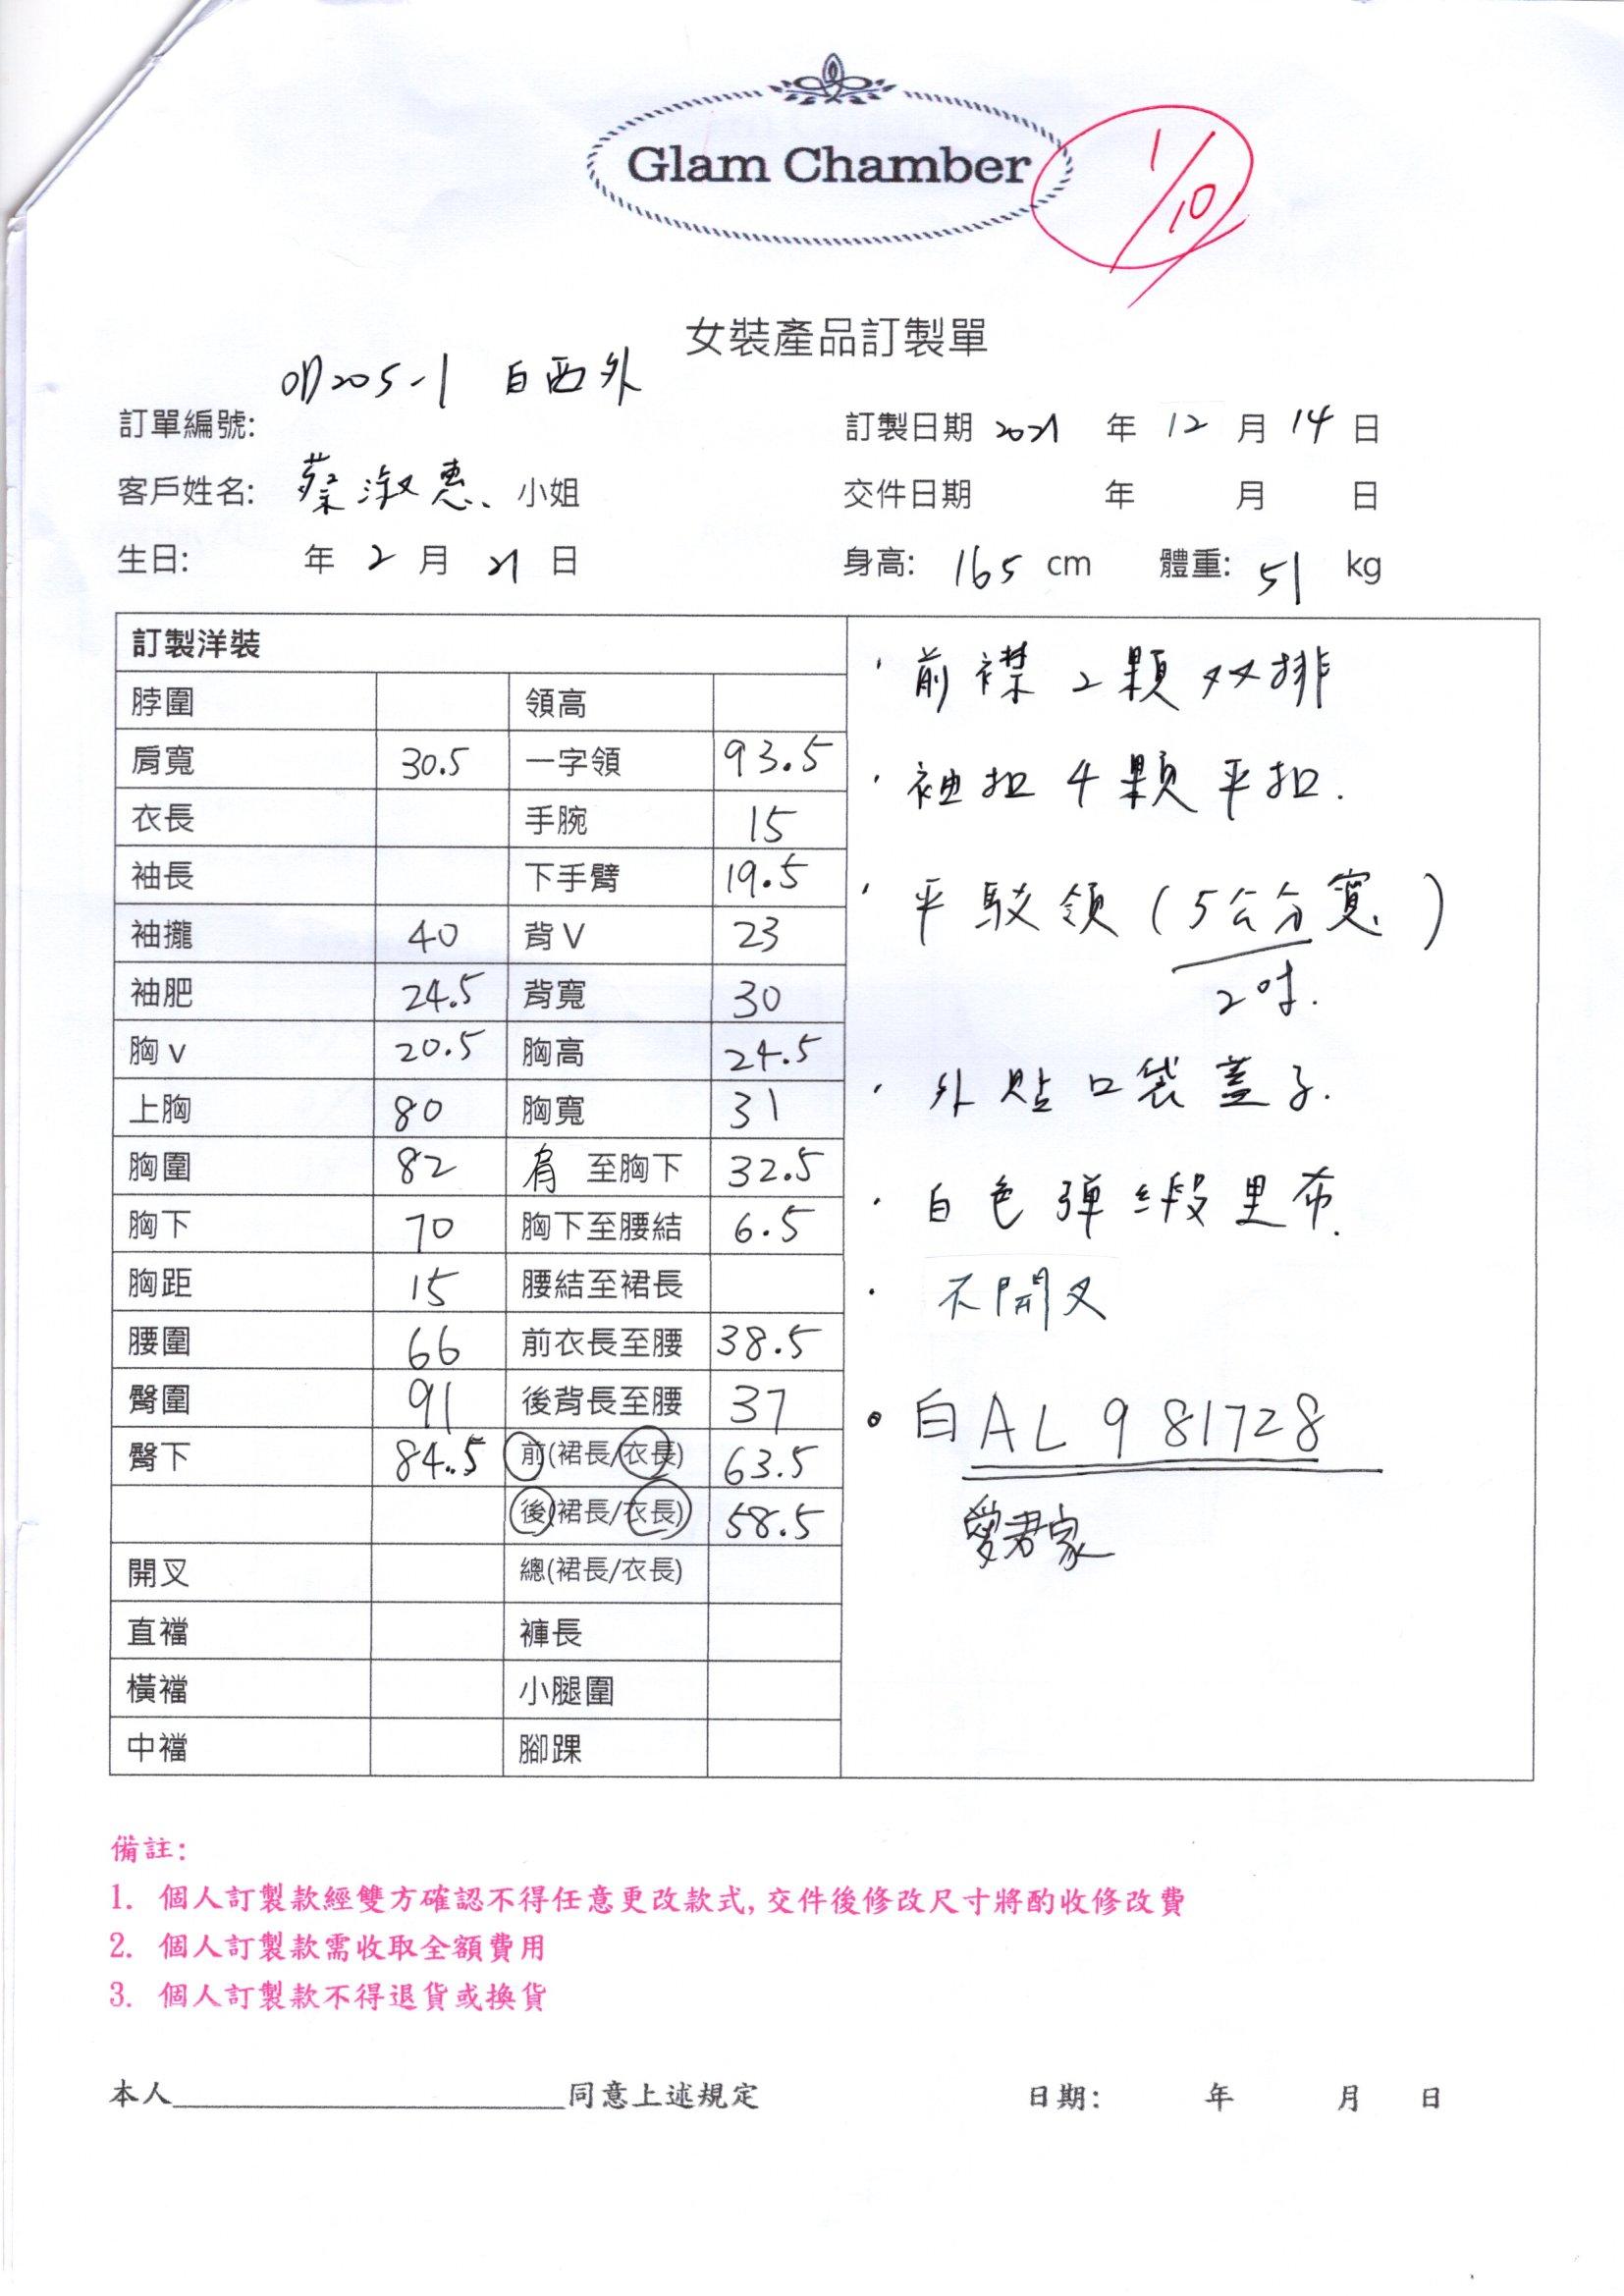 Glam Chamber
1/10
女裝產品訂製單
訂單編號: 205-1 白西外
訂製日期 2021 年 12 月 14 日
客戶姓名: 蔡淑惠 小姐
交件日期 年 月 日
生日: 年 2 月 21 日
身高: 165 cm 體重: 51 kg
訂製洋裝
脖圍 領高
肩寬 30.5 一字領 93.5
衣長 手腕 15
袖長 下手臂 19.5
袖攏 40 背V 23
袖肥 24.5 背寬 30
胸v 20.5 胸高 24.5
上胸 80 胸寬 31
胸圍 82 肩 至胸下 32.5
胸下 70 胸下至腰結 6.5
胸距 15 腰結至裙長
腰圍 66 前衣長至腰 38.5
臀圍 91 後背長至腰 37
臀下 84.5 前(裙長/衣長) 63.5
後(裙長/衣長) 58.5
開叉 總(裙長/衣長)
直襠 褲長
橫襠 小腿圍
中襠 腳踝
· 前襟2顆双排
· 袖扣4顆平扣.
· 平駁領(5公分寬)
2吋.
· 外貼口袋蓋子.
· 白色弹緞里布.
· 不開叉
• 白AL981728
愛君家
備註:
1. 個人訂製款經雙方確認不得任意更改款式,交件後修改尺寸將酌收修改費
2. 個人訂製款需收取全額費用
3. 個人訂製款不得退貨或換貨
本人____________________同意上述規定 日期: 年 月 日